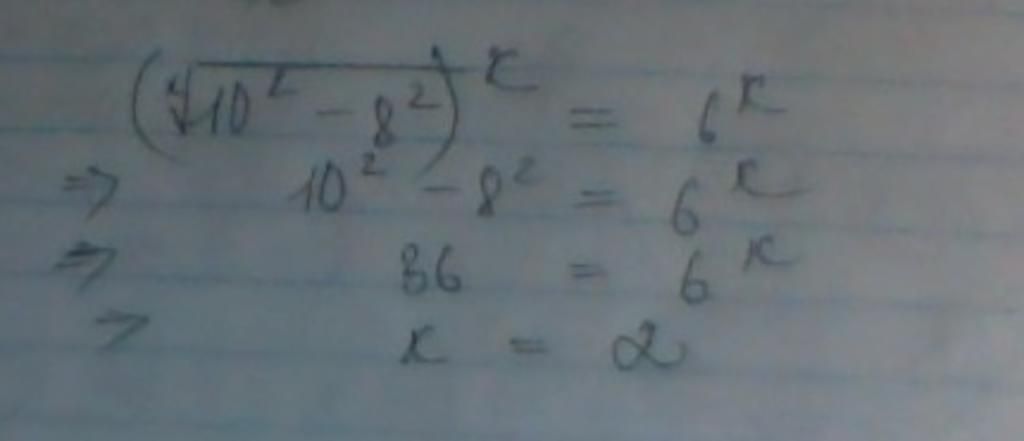 (√10² - 8²)ˣ = 6ˣ
⇒ 10² - 8² = 6ˣ
⇒ 36 = 6ˣ
⇒ x = 2